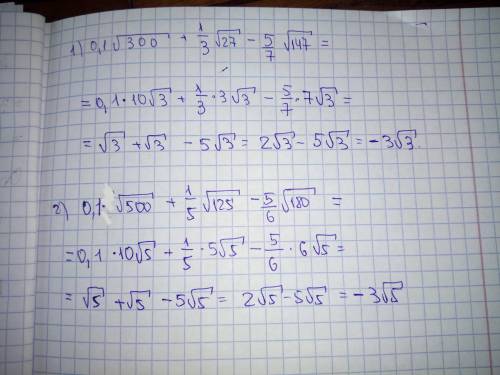 1) 0,1√300 + 1/3 √27 - 5/7 √147 =
= 0,1 · 10√3 + 1/3 · 3√3 - 5/7 · 7√3 =
= √3 + √3 - 5√3 = 2√3 - 5√3 = -3√3
2) 0,1 · √500 + 1/5 √125 - 5/6 √180 =
= 0,1 · 10√5 + 1/5 · 5√5 - 5/6 · 6√5 =
= √5 + √5 - 5√5 = 2√5 - 5√5 = -3√5